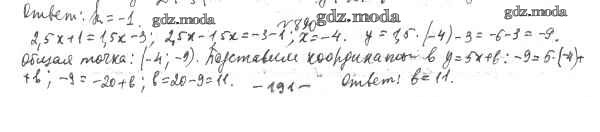 Ответ: k=-1. gdz.moda
gdz.moda N890 gdz.moda
2,5x+1=1,5x-3; 2,5x-1,5x=-3-1; x=-4. y=1,5·(-4)-3=-6-3=-9.
Общая точка: (-4; -9). Подставим координаты в y=5x+b: -9=5·(-4)+
+b; -9=-20+b; b=20-9=11. Ответ: b=11.
-191-